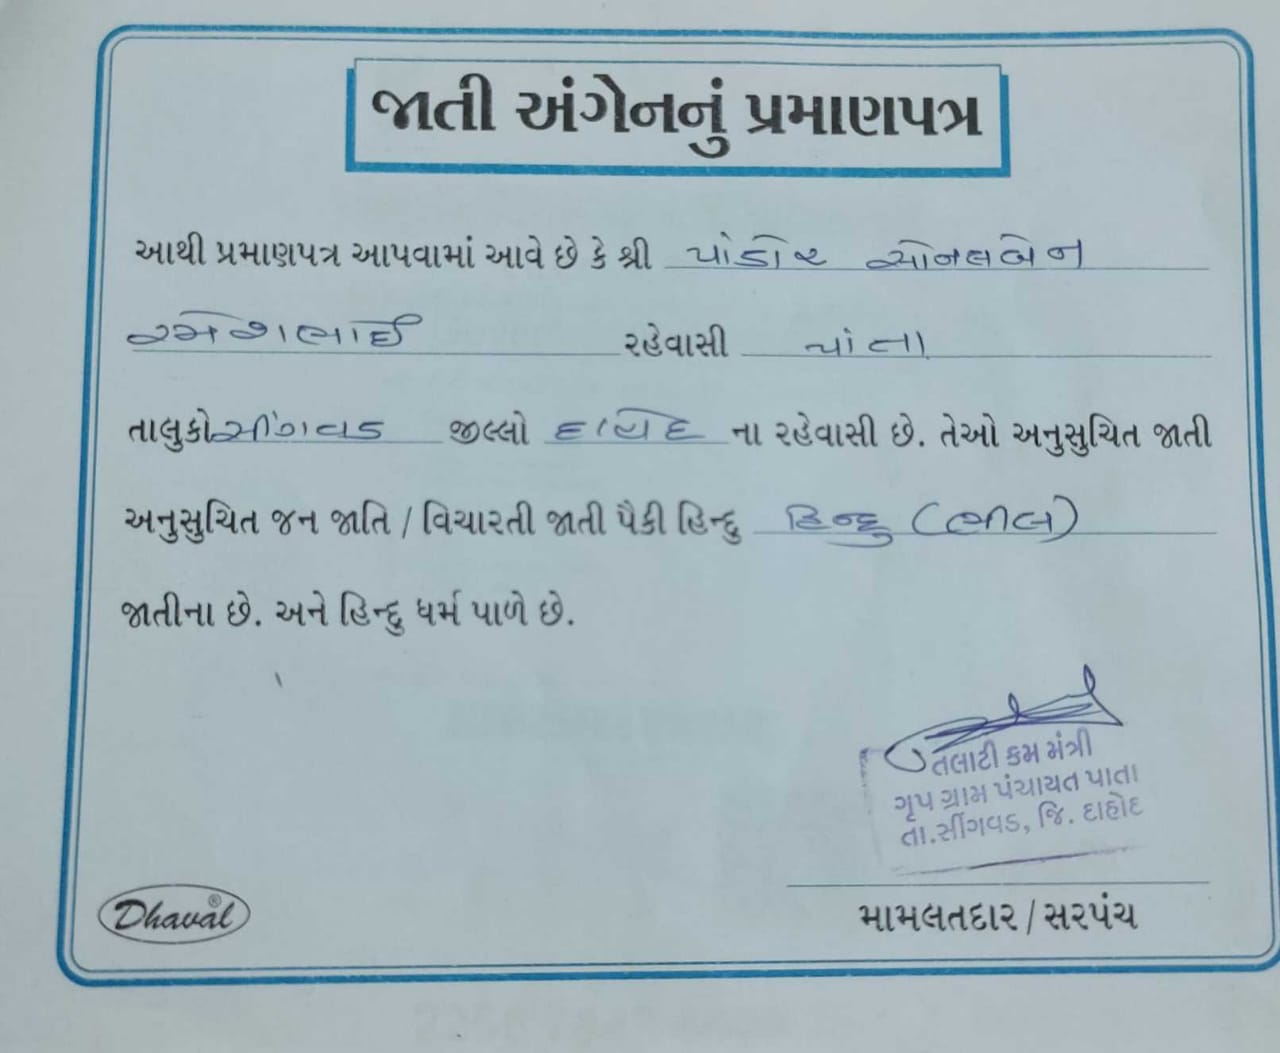 જાતી અંગેનનું પ્રમાણપત્ર
આથી પ્રમાણપત્ર આપવામાં આવે છે કે શ્રી પાંડોર સોનલબેન
રમેશભાઈ રહેવાસી પાંતા
તાલુકો સીંગવડ જીલ્લો દાહોદ ના રહેવાસી છે. તેઓ અનુસુચિત જાતી
અનુસુચિત જન જાતિ / વિચારતી જાતી પૈકી હિન્દુ હિન્દુ (ભીલ)
જાતીના છે. અને હિન્દુ ધર્મ પાળે છે.
તલાટી કમ મંત્રી
ગૃપ ગ્રામ પંચાયત પાતા
તા.સીંગવડ, જિ. દાહોદ
Dhaval®
મામલતદાર / સરપંચ